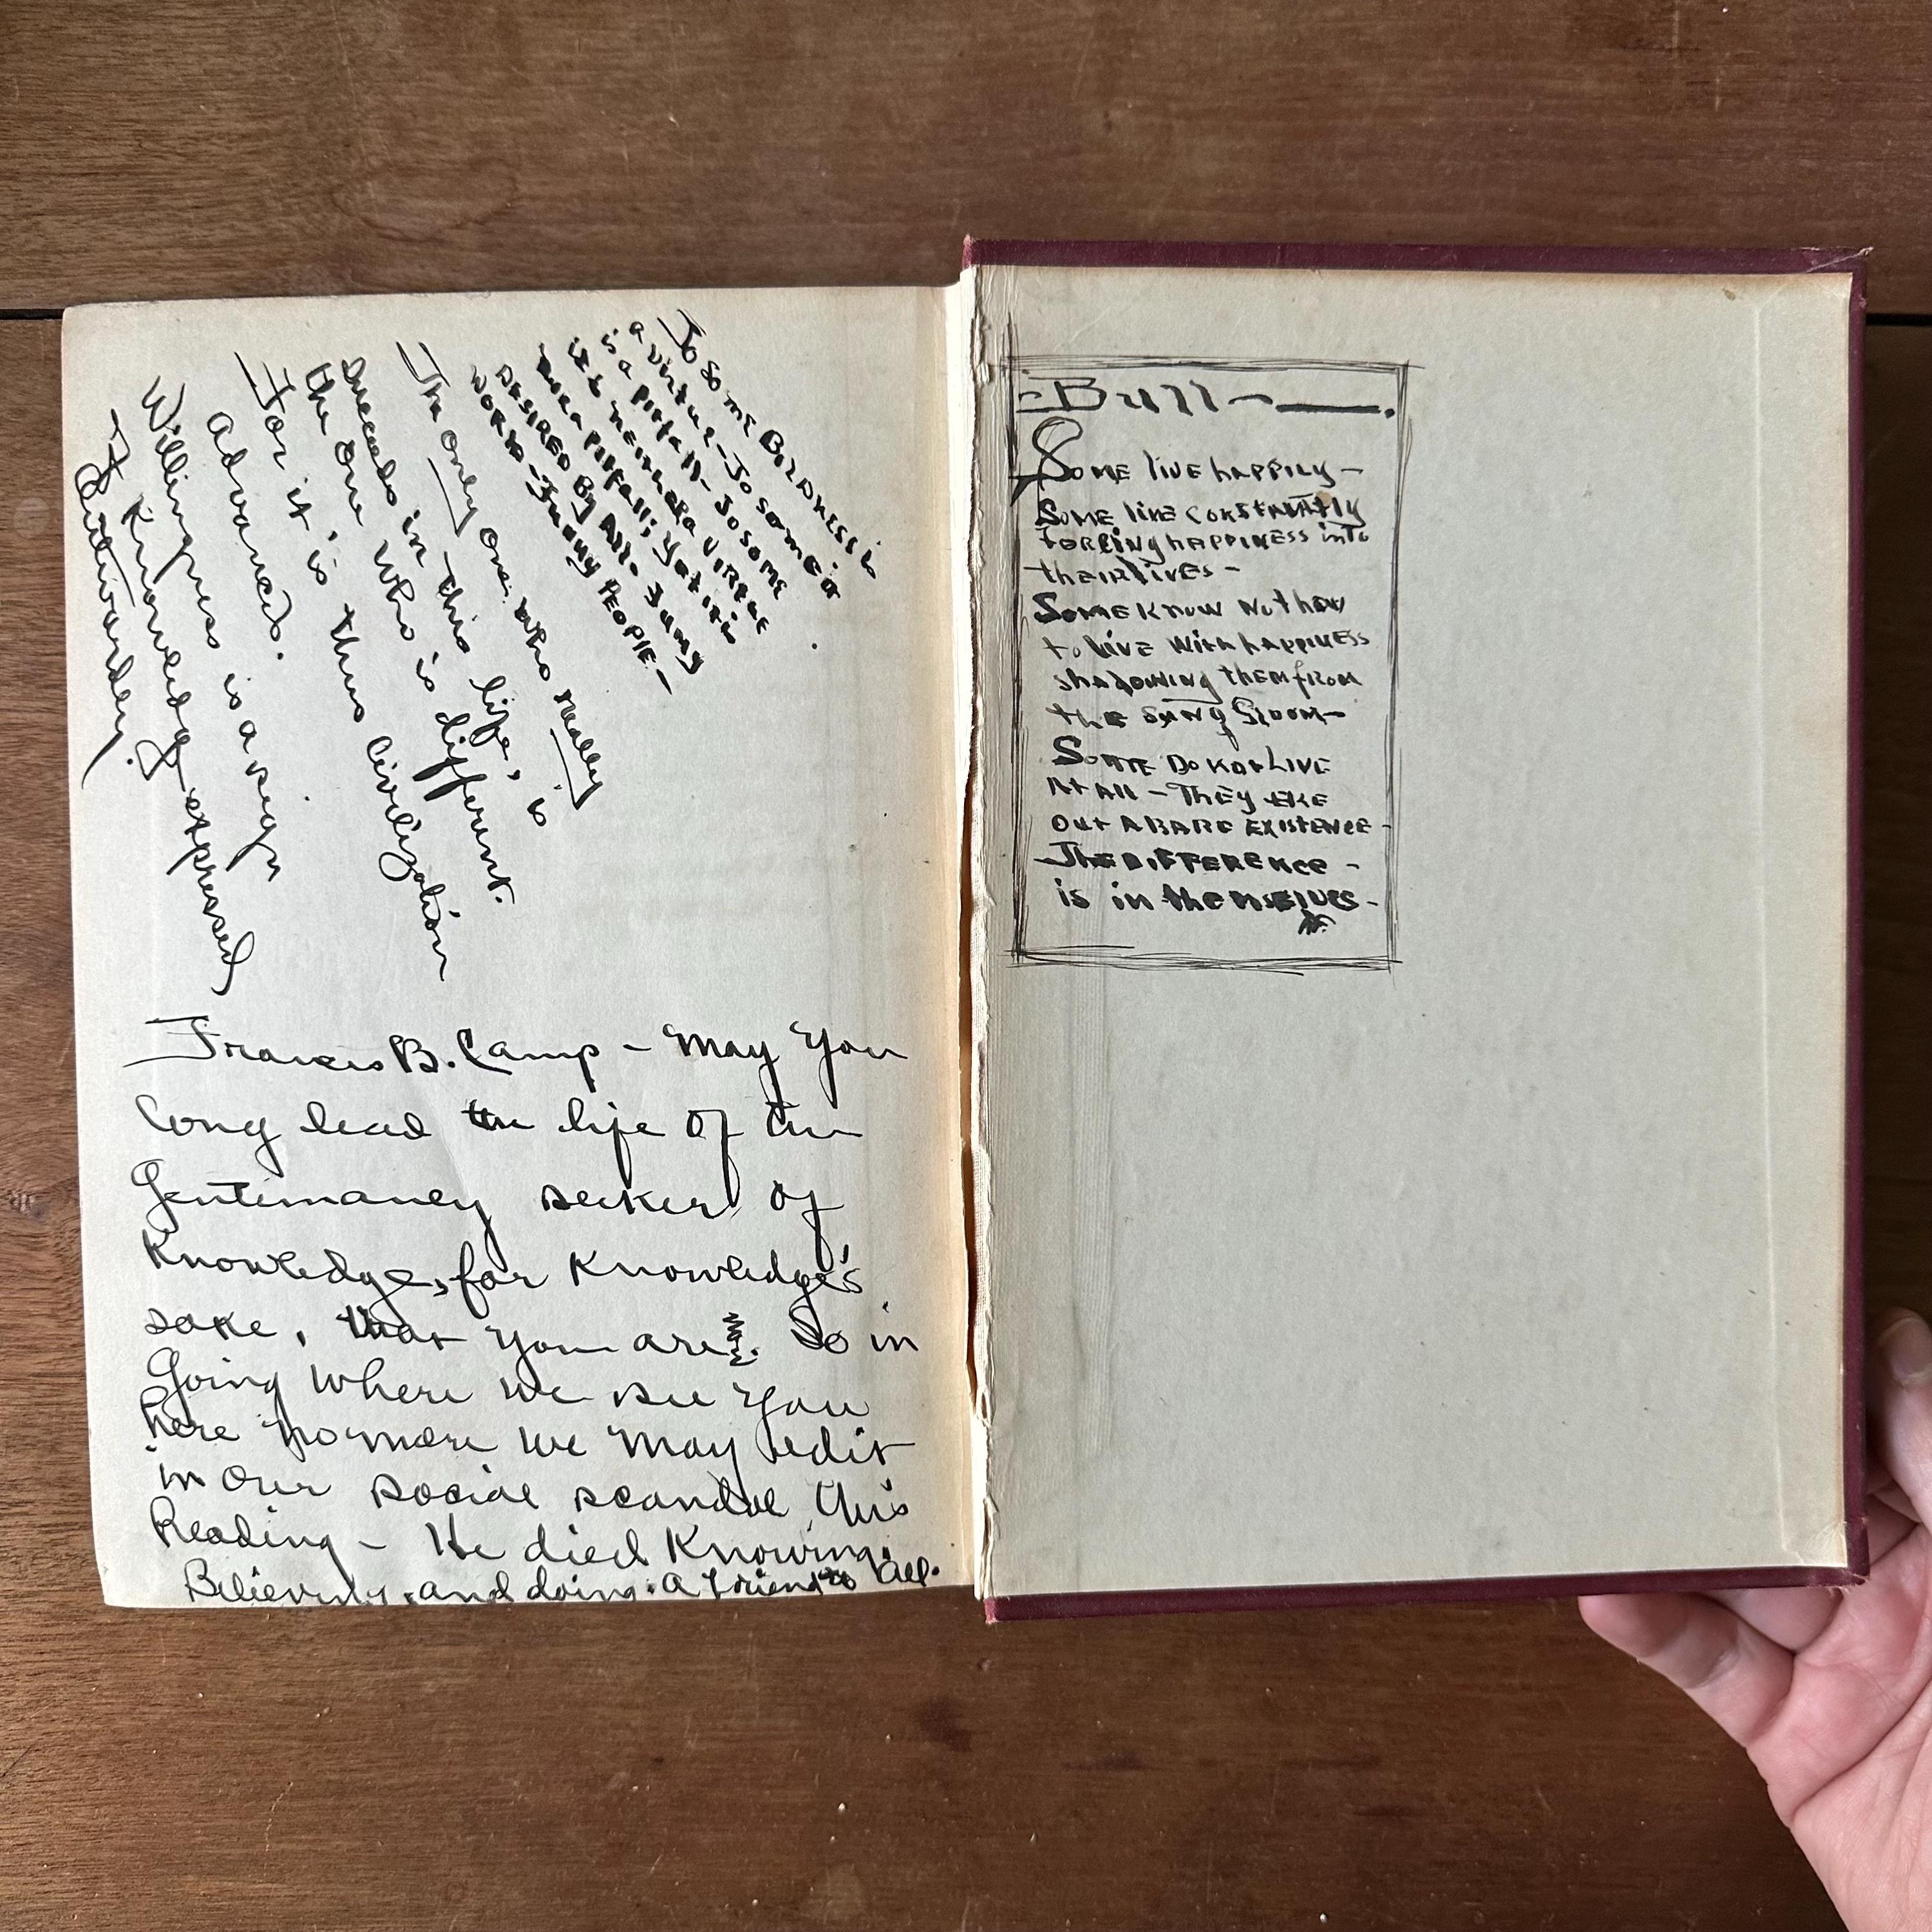 To some Boldness is
a virtue - To some it
is a pitfall - To some
it is neither a virtue
nor a pitfall; yet it is
DESIRED By All. Funny
WORLD - Funny PEOPLE. -
The only one who really
succeeds in this life, is
the one who is different.
For it is thus Civilization
Advances.
Willingness is a sign
of Knowledge expressed
Francis B. Camp - May you
long lead the life of the
Gentlemanly seeker of
Knowledge, for Knowledge's
sake, that you are. So in
Going where we see you
here no more we may edit
in our social scandal this
Reading - He died Knowing.
Believing. and doing. A friend to all.
Bull - .
SOME live happily -
SOME live constantly
forcing happiness into
their lives -
SOME Know Not how
to live with happiness
shadowing them from
the gloom -
SOME Do Not LIVE
At All - They EKE
out A BARE EXISTENCE -
The DIFFERENCE -
is in themselves -